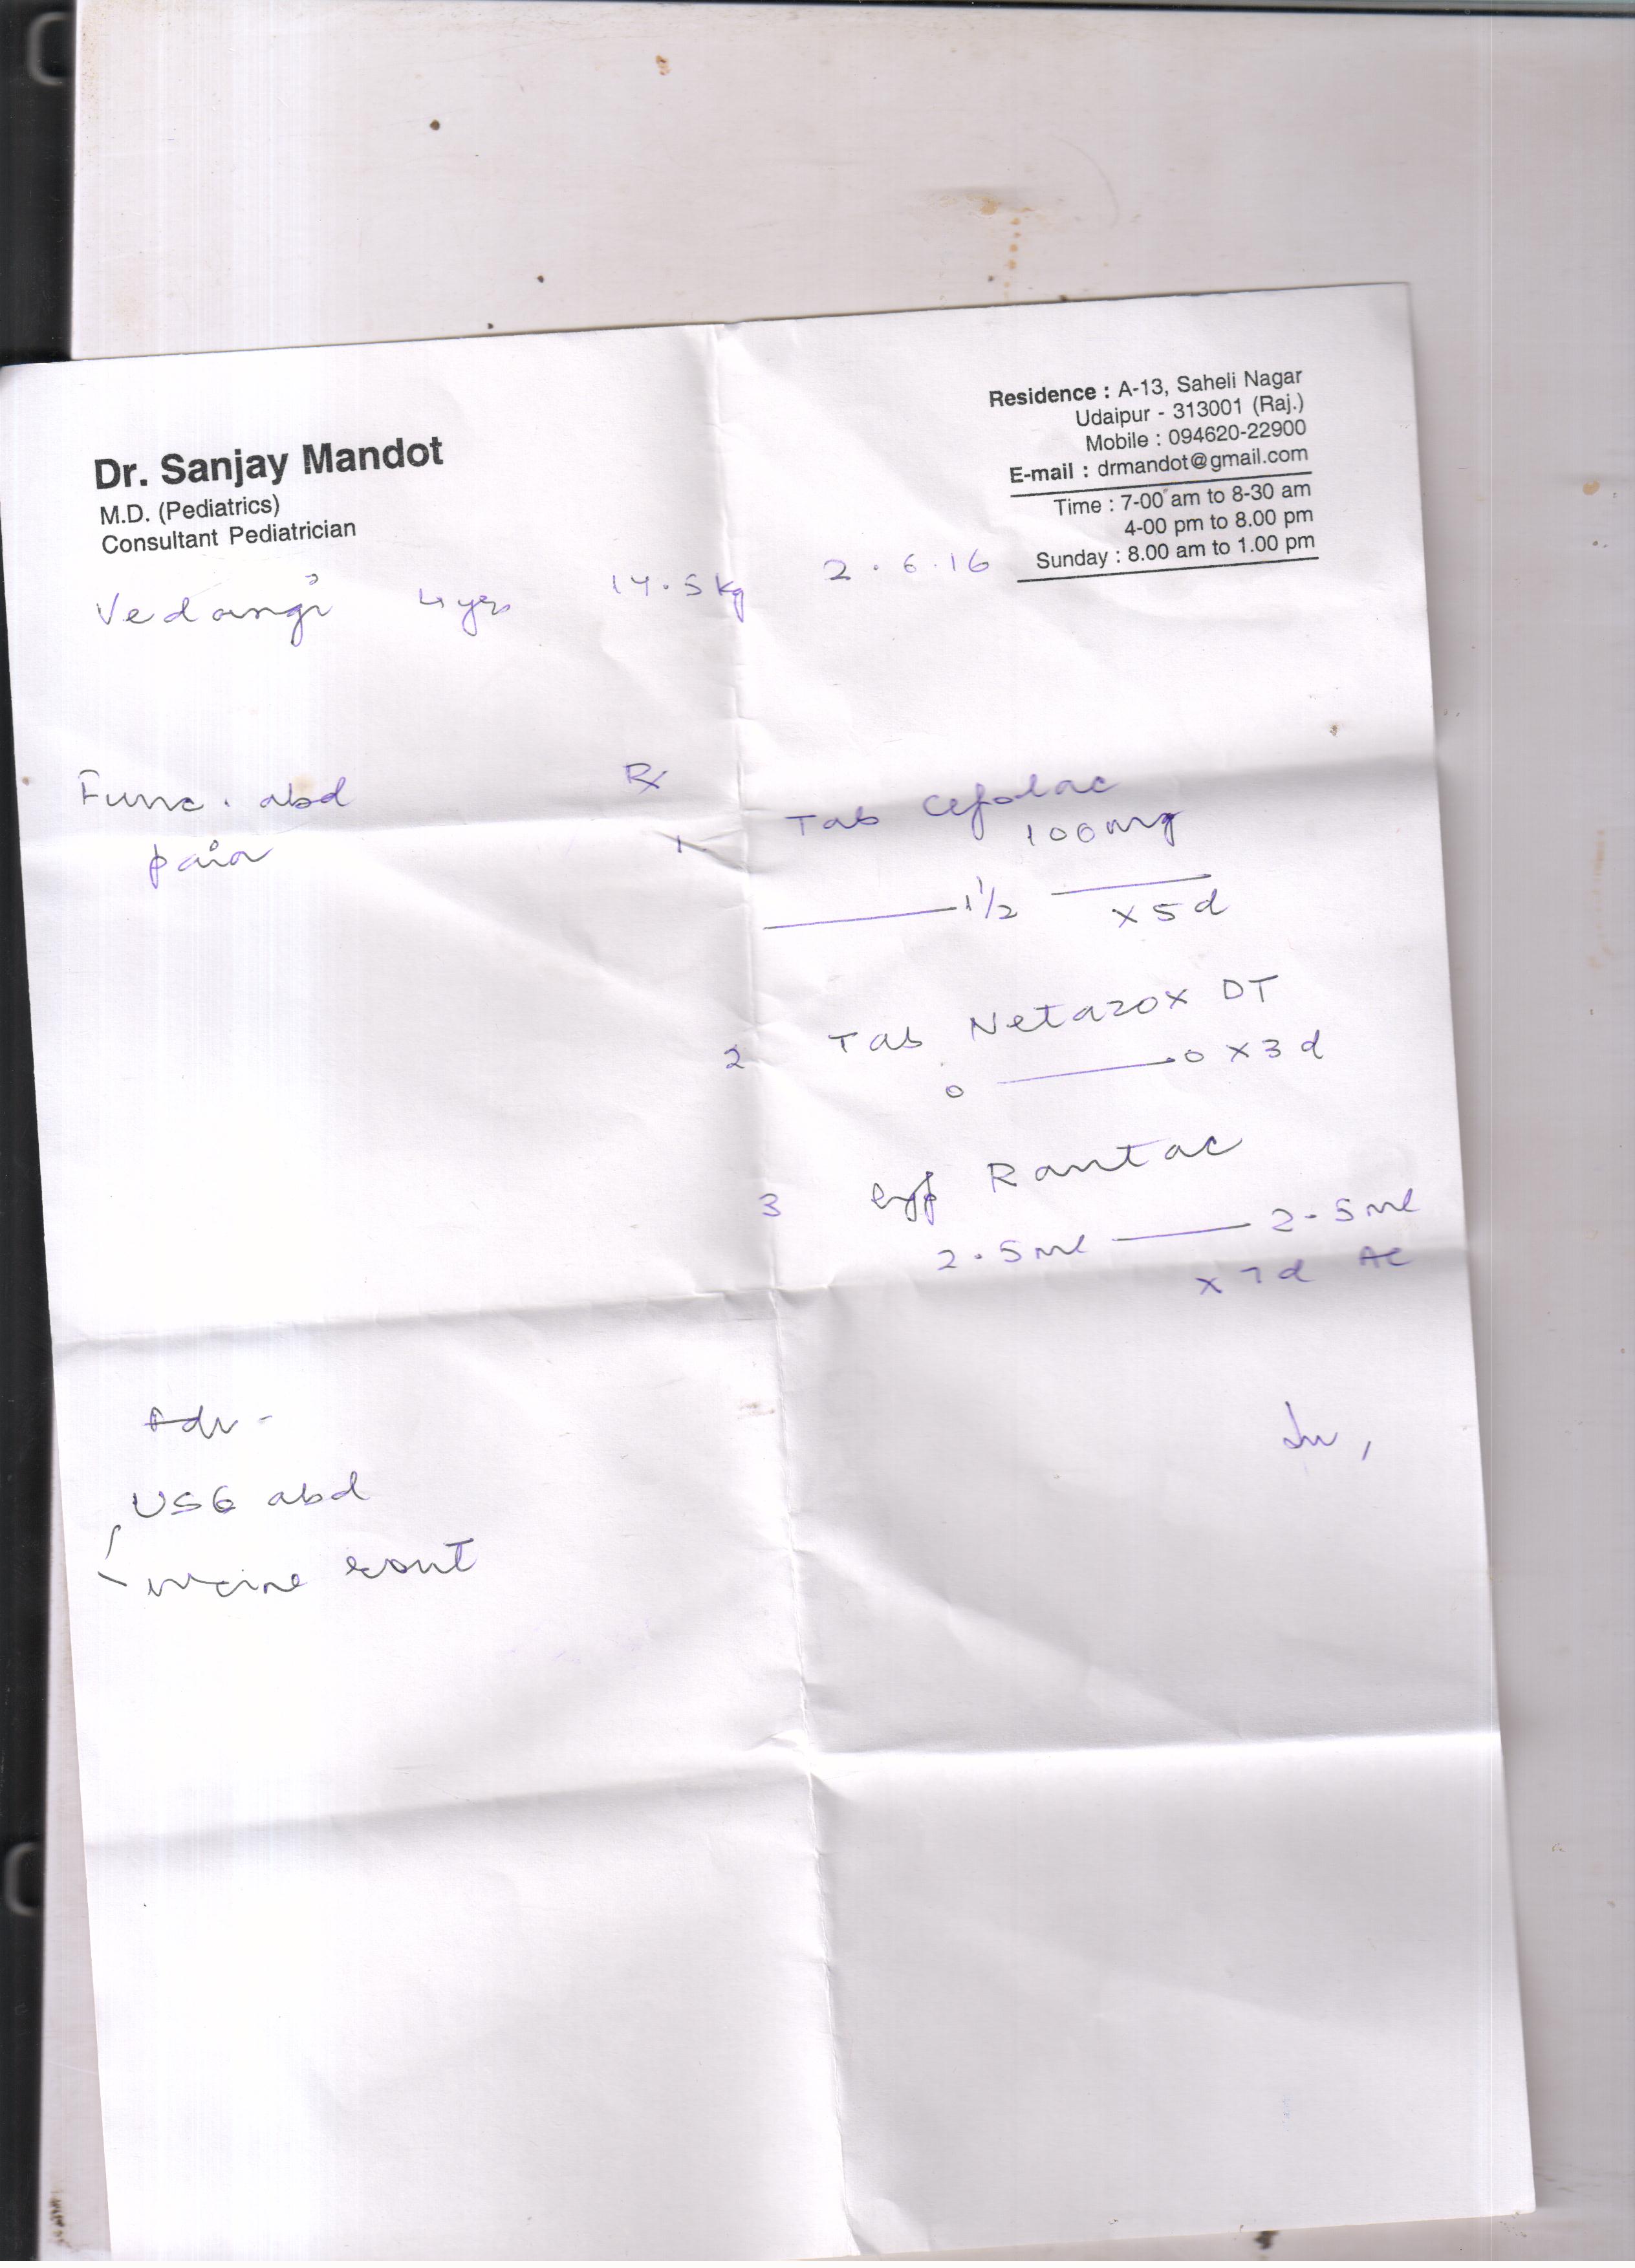 Dr. Sanjay Mandot
M.D. (Pediatrics)
Consultant Pediatrician
Residence : A-13, Saheli Nagar
Udaipur - 313001 (Raj.)
Mobile : 094620-22900
E-mail : drmandot@gmail.com
Time : 7-00 am to 8-30 am
4-00 pm to 8.00 pm
Sunday : 8.00 am to 1.00 pm
Vedangi 4 yrs 14.5 kg 2.6.16
Func. abd
pain
Rx
1. Tab Cefolac
100mg
1 1/2
x 5 d
2 Tab Netazox DT
0 0 x 3 d
3 Syp Rantac
2.5 ml 2.5 ml
x 7 d AC
Adv -
USG abd
urine rout